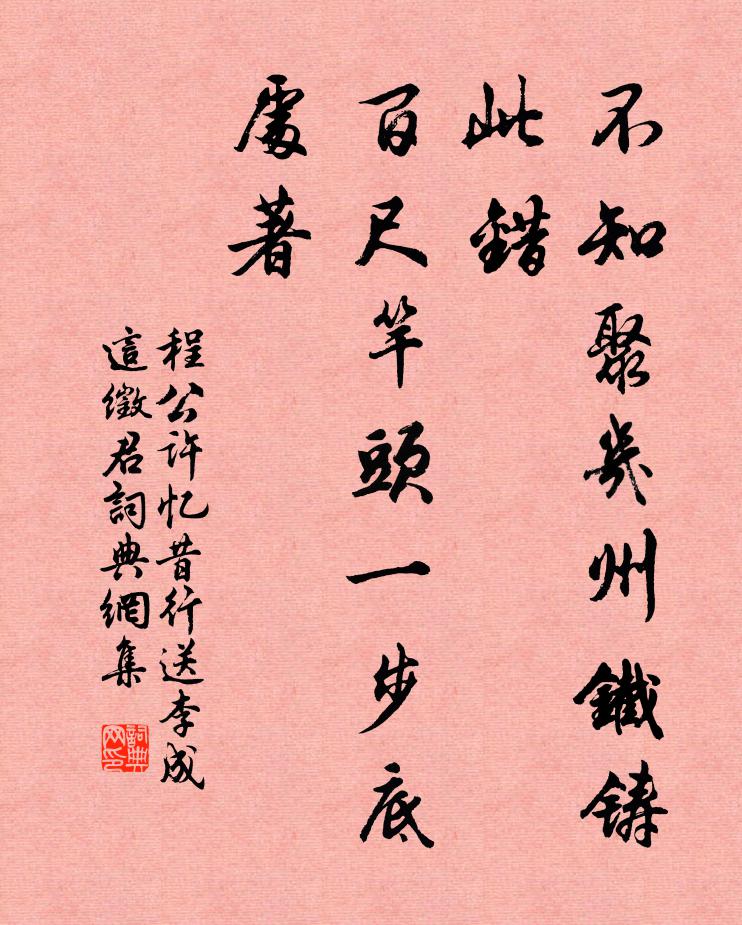 不知聚幾州鐵鑄
此錯
百尺竿頭一步底
處著
程公许忆昔行送李成
這徵君詞典網集
詞典网印